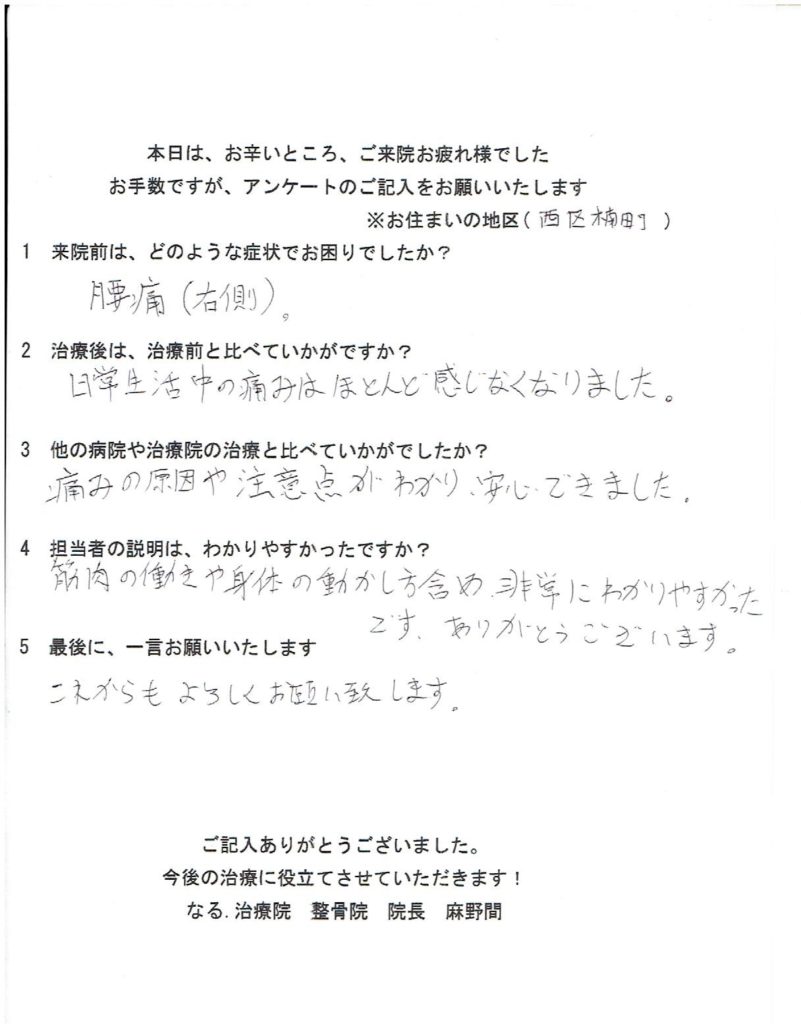 本日は、お辛いところ、ご来院お疲れ様でした
お手数ですが、アンケートのご記入をお願いいたします
※お住まいの地区(西区楠町)
1 来院前は、どのような症状でお困りでしたか？
腰痛(右側)。
2 治療後は、治療前と比べていかがですか？
日常生活中の痛みはほとんど感じなくなりました。
3 他の病院や治療院の治療と比べていかがでしたか？
痛みの原因や注意点がわかり、安心できました。
4 担当者の説明は、わかりやすかったですか？
筋肉の働きや身体の動かし方含め、非常にわかりやすかった
です。ありがとうございます。
5 最後に、一言お願いいたします
これからもよろしくお願い致します。
ご記入ありがとうございました。
今後の治療に役立てさせていただきます！
なる.治療院 整骨院 院長 麻野間